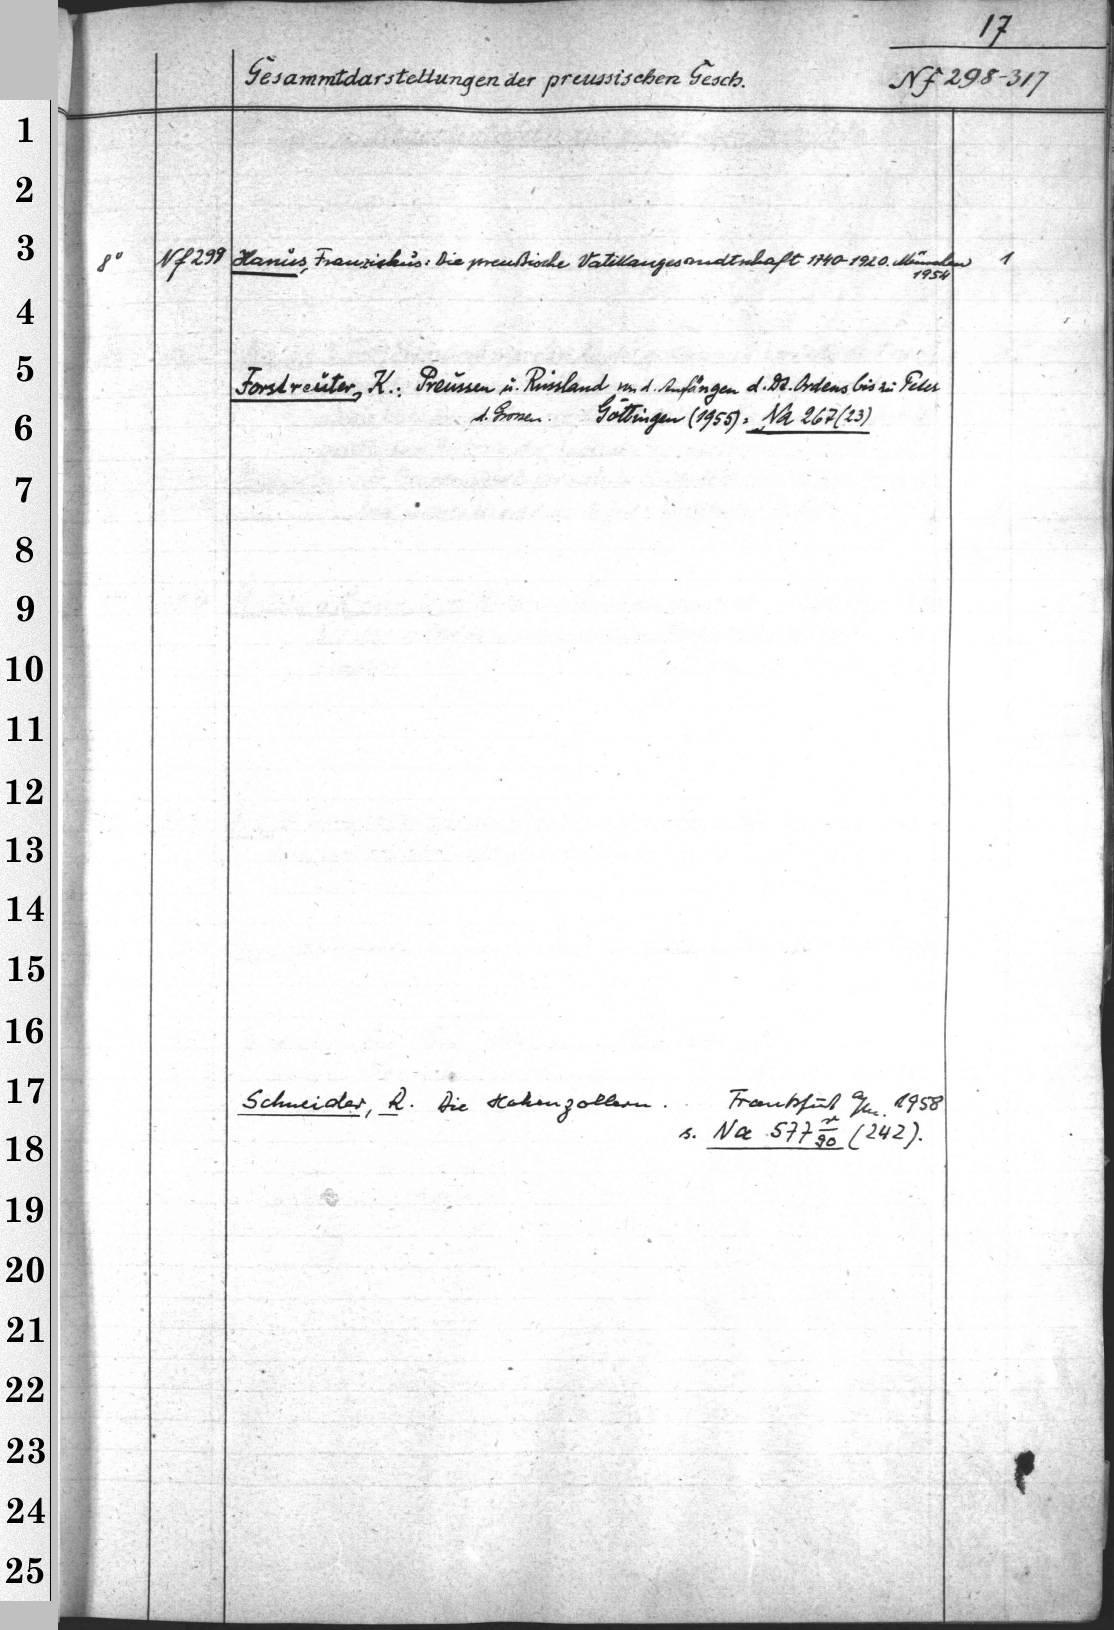 17
Gesammtdarstellungen der preussischen Gesch. Nf 298-317
8° Nf 299 Hanus, Franziskus: Die preußische Vatikangesandtschaft 1740-1920. München 1
1954
Forstreuter, K.: Preussen u. Russland von d. Anfängen d. Dt. Ordens bis zu Peter
d. Grossen. Göttingen (1955) = Na 267 (23)
Schneider, R. Die Hohenzollern. Frankfurt 1958
s. Na 577 (242).
1
2
3
4
5
6
7
8
9
10
11
12
13
14
15
16
17
18
19
20
21
22
23
24
25